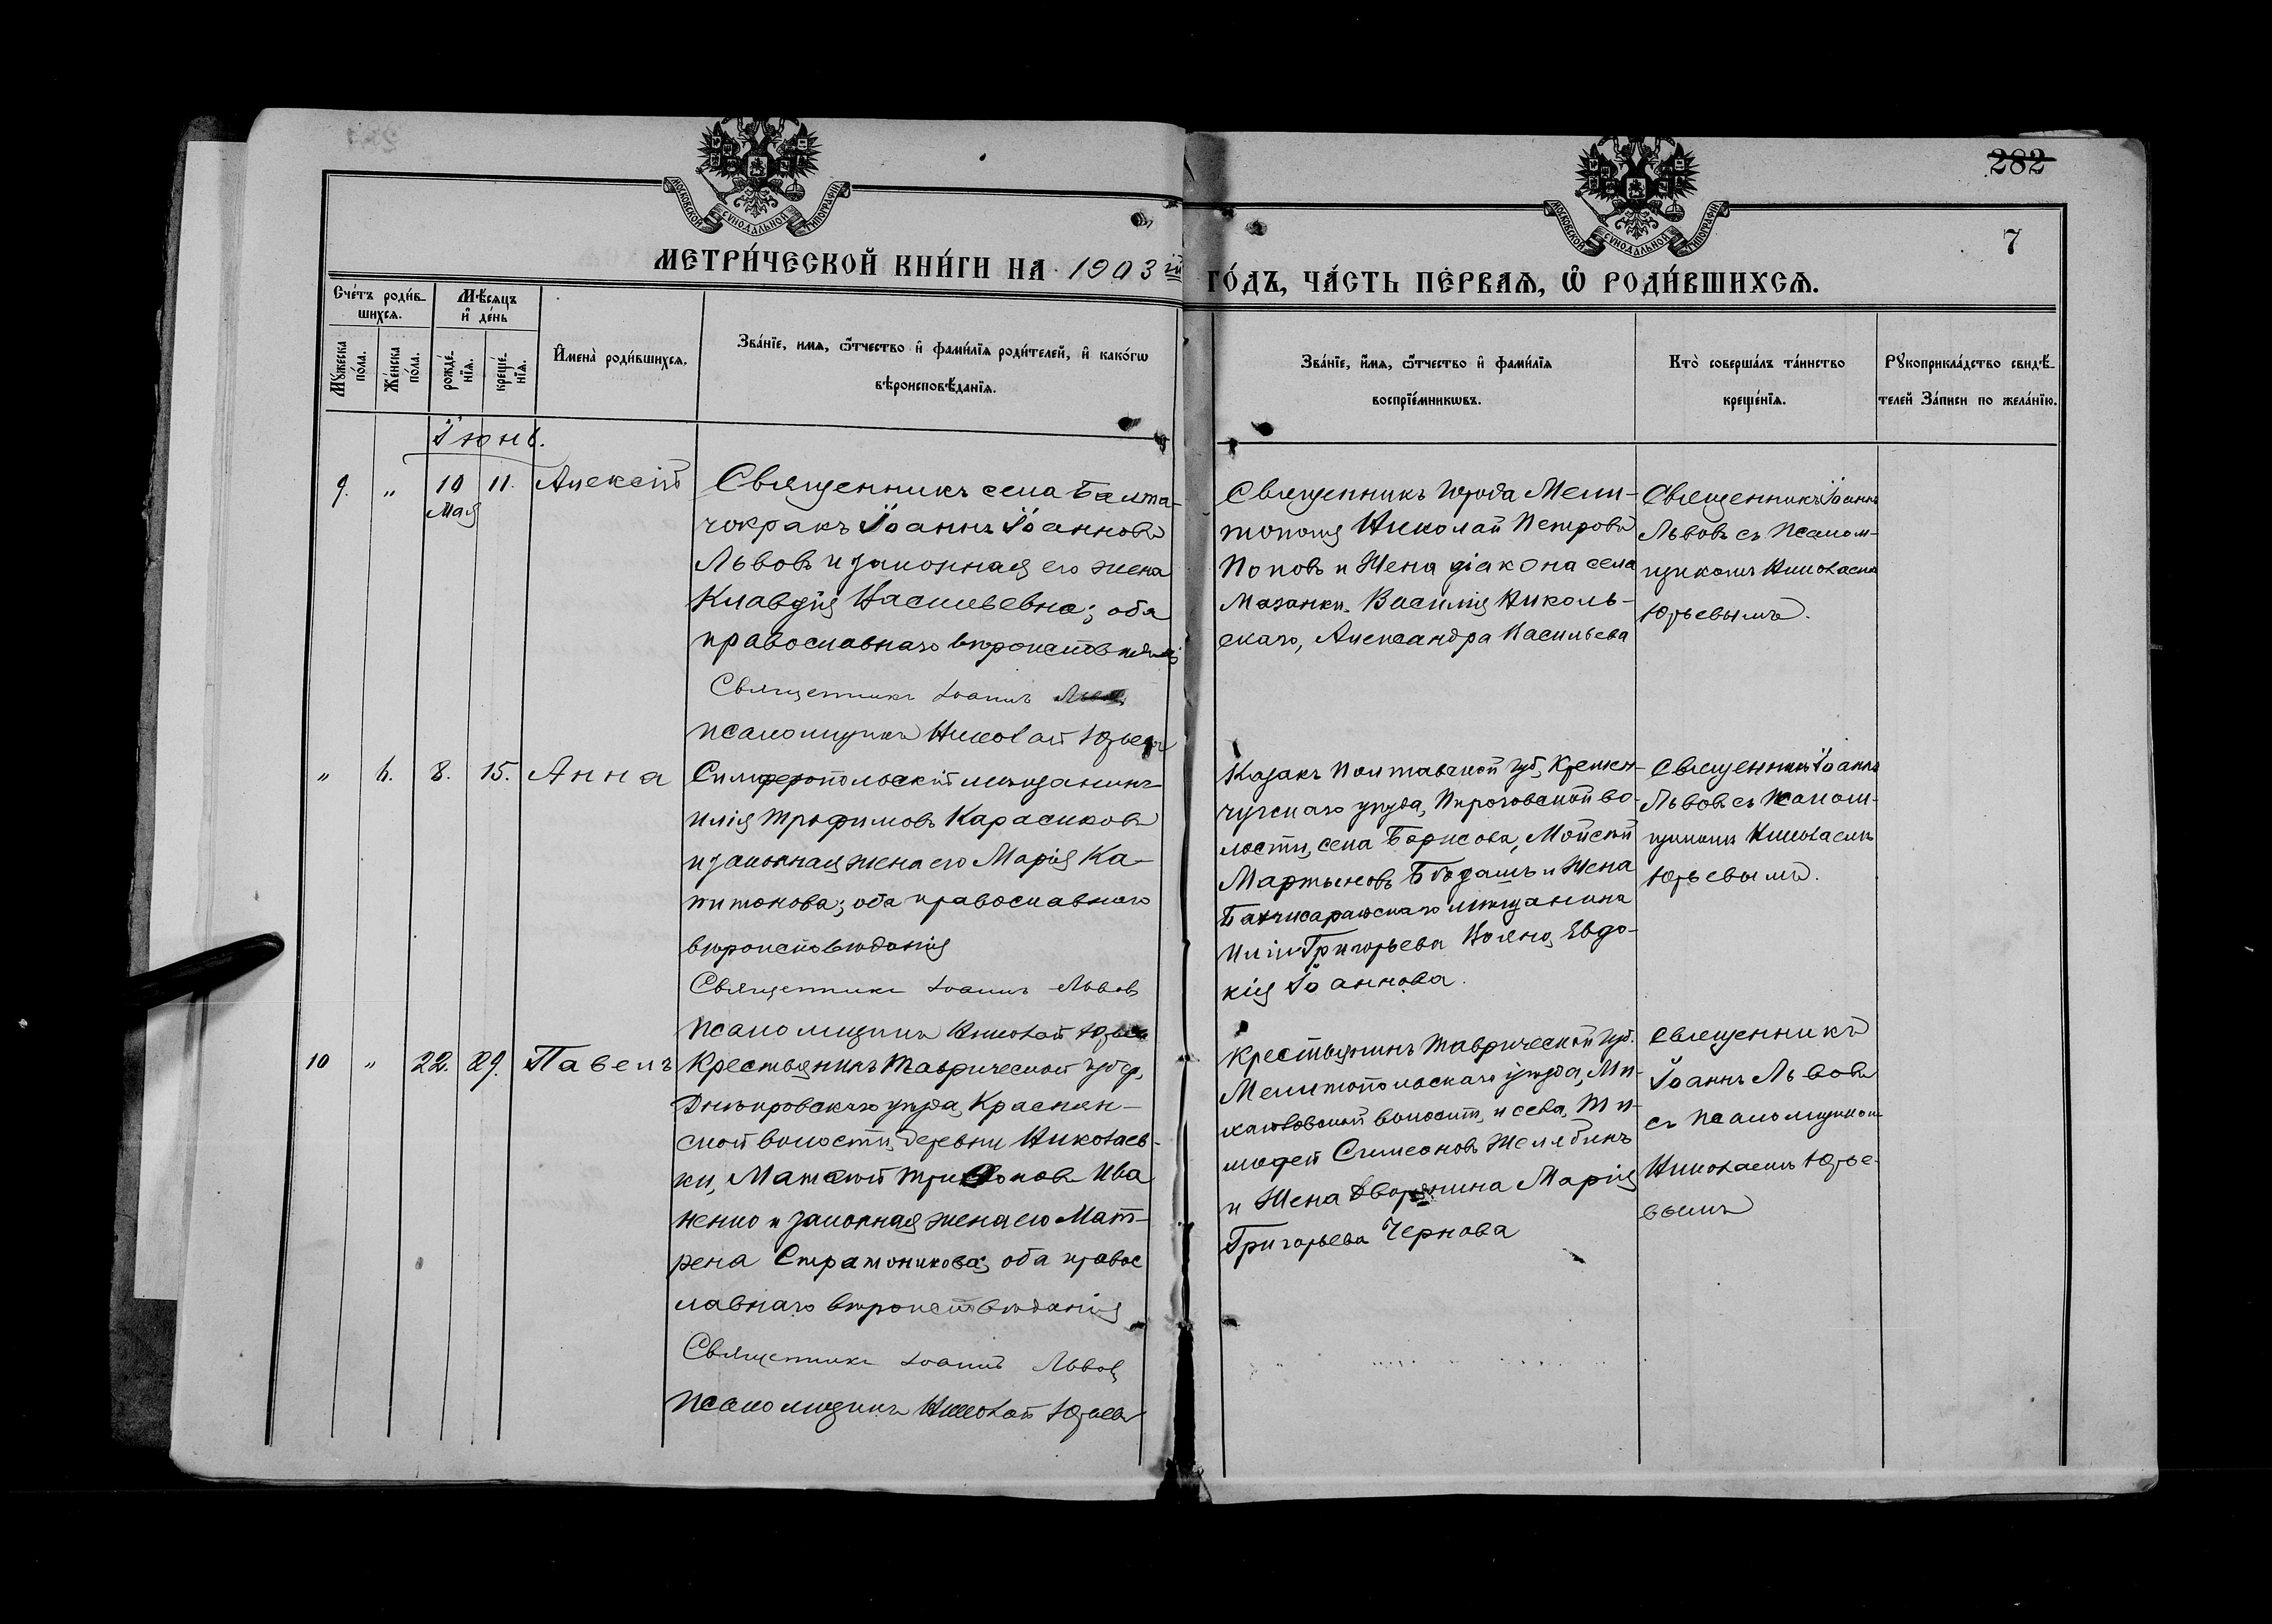 282
7
МОСКОВСКОЙ СѴНОДАЛЬНОЙ ТИПОГРАФІИ
МОСКОВСКОЙ СѴНОДАЛЬНОЙ ТИПОГРАФІИ
МЕТРИ́ЧЕСКОЙ КНИ́ГИ НА 1903 ій ГО́ДЪ, ЧА́СТЬ ПЕ́РВАѦ, Ѡ҆ РОДИ́ВШИХСѦ.
Сче́тъ роди́в-
шихсѧ.
Мѣ́сѧцъ
и҆ де́нь
Мꙋ́жеска по́ла.
Же́нска по́ла.
рожде́нїѧ.
креще́нїѧ.
И҆мена̀ роди́вшихсѧ.
Зва́нїе, имѧ, ѻ҆́тчество и҆ фами́лїѧ роди́телей, и҆ како́гѡ
вѣроисповѣ́данїѧ.
Зва́нїе, и҆́мѧ, ѻ҆́тчество и҆ фами́лїѧ
воспрїе́мникѡвъ.
Кто̀ соверша́лъ та́инство
креще́нїѧ.
Рꙋкоприкла́дство свидѣ́-
телей За́писи по жела́нїю.
Іюнь.
9. " 10 11. Алексій
Мая
Священникъ села Балта-
чокракъ Іоаннъ Іоанновъ
Львовъ и законная его жена
Клавдія Васильевна; оба
православнаго вѣроисповѣданія
Священникъ Іоаннъ Львовъ
псаломщикъ Николай Юрьевъ
Священникъ города Мели-
тополя Николай Петровъ
Поповъ и жена діакона села
Мазанки Василія Николь-
скаго, Александра Васильева
Священникъ Іоаннъ
Львовъ съ псалом-
щикомъ Николаемъ
Юрьевымъ.
" 6. 8. 15. Анна
Симферопольскій мѣщанинъ
Илія Трофимовъ Карасиковъ
и законная жена его Марія Ка-
питонова; оба православнаго
вѣроисповѣданія
Священникъ Іоаннъ Львовъ
псаломщикъ Николай Юрьевъ
Казакъ Полтавской губ, Кремен-
чугскаго уѣзда, Пироговской во-
лости, села Борисова, Мойсей
Мартыновъ и жена
Бахчисарайскаго мѣщанина
Иліи Григорьева Евдо-
кія Іоаннова.
Священникъ Іоаннъ
Львовъ съ псалом-
щикомъ Николаемъ
Юрьевымъ.
10 " 22. 29. Павелъ
Крестьянинъ Таврической губер,
Днѣпровскаго уѣзда, Краснян-
ской волости, деревни Николаев-
ки, Матѳей Трифоновъ Ива
ненко и законная жена его Мат-
рена Стратоникова; оба правос
лавнаго вѣроисповѣданія
Священникъ Іоаннъ Львовъ
псаломщикъ Николай Юрьевъ
Крестьянинъ Таврической губ.
Мелитопольскаго уѣзда, Ми-
хайловской волости, и села, Ти-
моѳей Симеоновъ Желябинъ
и жена дворянина Марія
Григорьева Чернова
Священникъ
Іоаннъ Львовъ
съ псаломщикомъ
Николаемъ Юрье-
вымъ